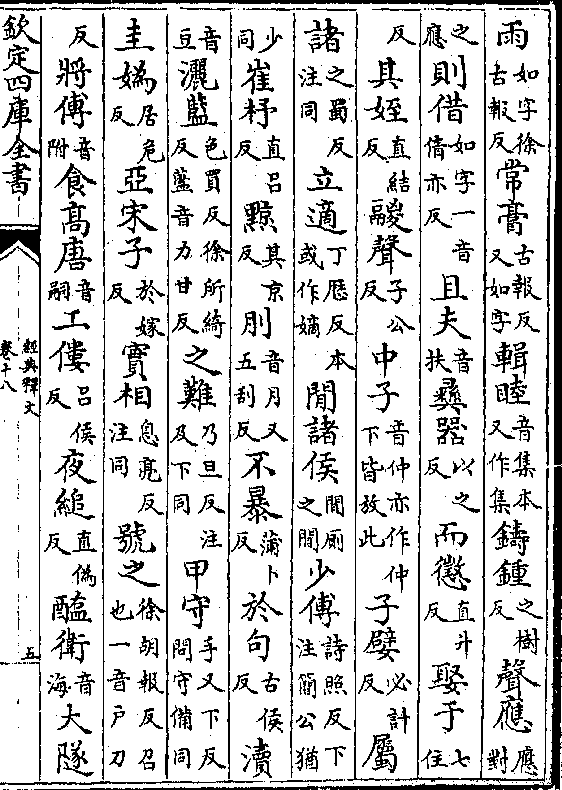 雨如字徐古報反常膏古報反又如字輯睦音集本又作集鑄鍾之樹反聲應應對
之應則借如字一音倩亦反且夫音扶彝器以之反而懲直升反娶于七住
反其姪直結反鬷聲子公反中子音仲亦作仲下皆放此子嬖必計反屬
諸之蜀反注同立適丁歴反本或作嫡閒諸侯間厠之間少傅詩照反下注簡公猶
少同崔杼直呂反黥其京反刖音月又五刮反不暴蒲卜反於句古侯反瀆
音豆灑藍色買反徐所綺反藍音力甘反之難乃旦反注及下同甲守手又下反問守備同
圭媯居危反亞宋子於嫁反實相息亮反注同號之徐胡報反召也一音戶刀
反將傅音附食高唐音嗣工僂呂侯反夜縋直偽反醢衛音海大隧
欽定四庫全書
經典釋文
卷十八
五